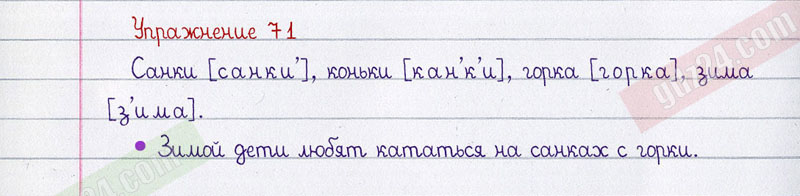 Упражнение 71
Санки [санки'], коньки [кан'к'и], горка [горка], зима
[з'има].
• Зимой дети любят кататься на санках с горки.
guz24.com